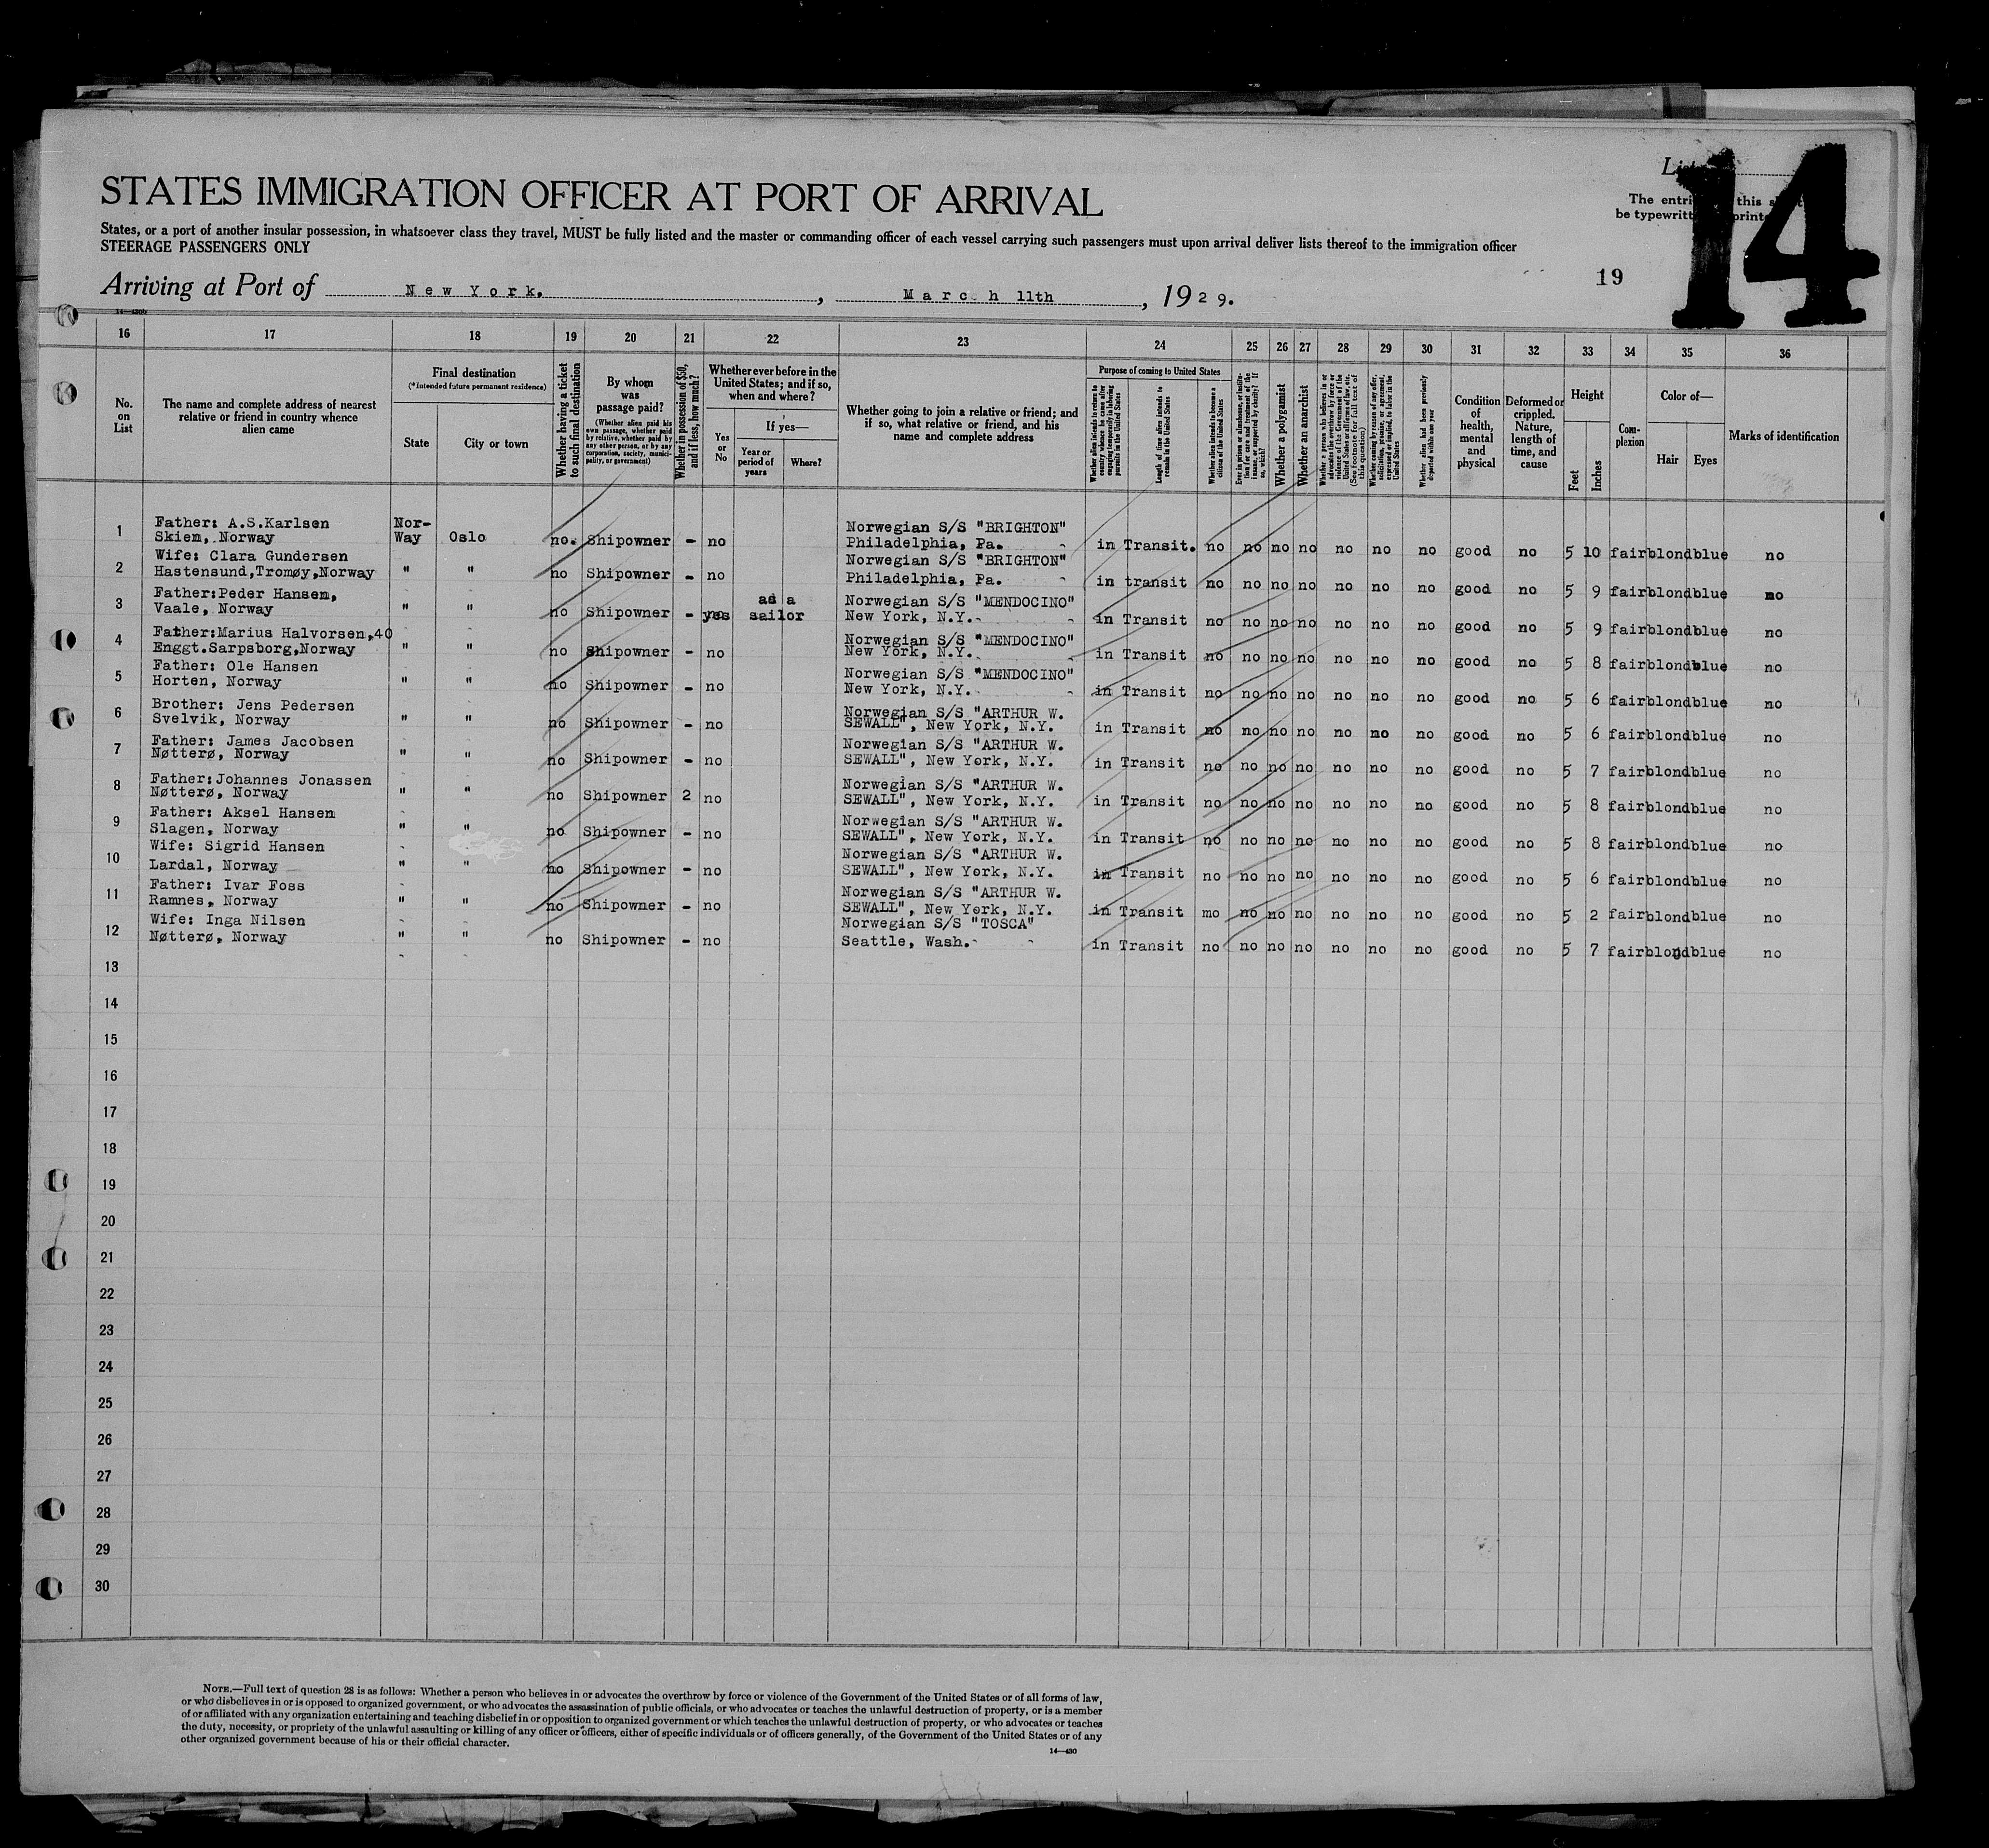 14
STATES IMMIGRATION OFFICER AT PORT OF ARRIVAL
States, or a port of another insular possession, in whatsoever class they travel, MUST be fully listed and the master or commanding officer of each vessel carrying such passengers must upon arrival deliver lists thereof to the immigration officer
STEERAGE PASSENGERS ONLY
Arriving at Port of New York. , March 11th , 1929.
19
16 17 18 19 20 21 22 23 24 25 26 27 28 29 30 31 32 33 34 35 36
No. on List
The name and complete address of nearest relative or friend in country whence alien came
Final destination
(*intended future permanent residence)
State
City or town
Whether having a ticket to such final destination
By whom was passage paid?
(Whether alien paid his own passage, whether paid by relative, whether paid by any other person, or by any corporation, society, municipality, or government)
Whether in possession of $50, and if less, how much?
Whether ever before in the United States; and if so, when and where?
Yes or No
If yes—
Year or period of years
Where?
Whether going to join a relative or friend; and if so, what relative or friend, and his name and complete address
Purpose of coming to United States
Whether alien intends to return to country whence he came after engaging temporarily in laboring pursuits in the United States
Length of time alien intends to remain in the United States
Whether alien intends to become a citizen of the United States
Ever in prison or almshouse, or institution for care and treatment of the insane, or supported by charity? If so, which?
Whether a polygamist
Whether an anarchist
Whether a person who believes in or advocates the overthrow by force or violence of the Government of the United States or all forms of law, etc. (See footnote for full text of this question)
Whether coming by reason of any offer, solicitation, promise, or agreement, expressed or implied, to labor in the United States
Whether alien had been previously deported within one year
Condition of health, mental and physical
Deformed or crippled. Nature, length of time, and cause
Height
Feet
Inches
Complexion
Color of—
Hair
Eyes
Marks of identification
1 Father: A.S.Karlsen Skien, Norway Nor-Way Oslo no. Shipowner - no Norwegian S/S "BRIGHTON" Philadelphia, Pa. in Transit. no no no no no no no good no 5 10 fair blond blue no
2 Wife: Clara Gundersen Hastensund,Tromøy,Norway " " no Shipowner - no Norwegian S/S "BRIGHTON" Philadelphia, Pa. in transit no no no no no no no good no 5 9 fair blond blue no
3 Father:Peder Hansen, Vaale, Norway " " no Shipowner - yes as a sailor Norwegian S/S "MENDOCINO" New York, N.Y. in Transit no no no no no no no good no 5 9 fair blond blue no
4 Father:Marius Halvorsen,40 Enggt.Sarpsborg,Norway " " no Shipowner - no Norwegian S/S "MENDOCINO" New York, N.Y. in Transit no no no no no no no good no 5 8 fair blond blue no
5 Father: Ole Hansen Horten, Norway " " no Shipowner - no Norwegian S/S "MENDOCINO" New York, N.Y. in Transit no no no no no no no good no 5 6 fair blond blue no
6 Brother: Jens Pedersen Svelvik, Norway " " no Shipowner - no Norwegian S/S "ARTHUR W. SEWALL", New York, N.Y. in Transit no no no no no no no good no 5 6 fair blond blue no
7 Father: James Jacobsen Nøtterø, Norway " " no Shipowner - no Norwegian S/S "ARTHUR W. SEWALL", New York, N.Y. in Transit no no no no no no no good no 5 7 fair blond blue no
8 Father:Johannes Jonassen Nøtterø, Norway " " no Shipowner 2 no Norwegian S/S "ARTHUR W. SEWALL", New York, N.Y. in Transit no no no no no no no good no 5 8 fair blond blue no
9 Father: Aksel Hansen Slagen, Norway " " no Shipowner - no Norwegian S/S "ARTHUR W. SEWALL", New York, N.Y. in Transit no no no no no no no good no 5 8 fair blond blue no
10 Wife: Sigrid Hansen Lardal, Norway " " no Shipowner - no Norwegian S/S "ARTHUR W. SEWALL", New York, N.Y. in Transit no no no no no no no good no 5 6 fair blond blue no
11 Father: Ivar Foss Ramnes, Norway " " no Shipowner - no Norwegian S/S "ARTHUR W. SEWALL", New York, N.Y. in Transit mo no no no no no no good no 5 2 fair blond blue no
12 Wife: Inga Nilsen Nøtterø, Norway " " no Shipowner - no Norwegian S/S "TOSCA" Seattle, Wash. in Transit no no no no no no no good no 5 7 fair blond blue no
13
14
15
16
17
18
19
20
21
22
23
24
25
26
27
28
29
30
NOTE.—Full text of question 28 is as follows: Whether a person who believes in or advocates the overthrow by force or violence of the Government of the United States or of all forms of law,
or who disbelieves in or is opposed to organized government, or who advocates the assassination of public officials, or who advocates or teaches the unlawful destruction of property, or is a member
of or affiliated with any organization entertaining and teaching disbelief in or opposition to organized government or which teaches the unlawful destruction of property, or who advocates or teaches
the duty, necessity, or propriety of the unlawful assaulting or killing of any officer or officers, either of specific individuals or of officers generally, of the Government of the United States or of any
other organized government because of his or their official character.
14—430